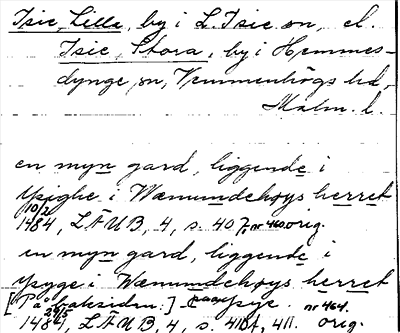 Isie, Lilla, by i L. Isie sn, el.
Isie, Stora, by i Hemmes-
dynge sn, Vemmenhögs hd,
Malm. l.
en myn gard, liggende i
Ysighe i Wæmundehøys herret
10/2 1484, LÄUB, 4, s. 407, nr 460 orig.
en myn gard, liggende i
ysyge i Wæmundehøys herret
[På baksidan:] ysye. nr 464.
1484, LÄUB, 4, s. 410f, 411. orig.